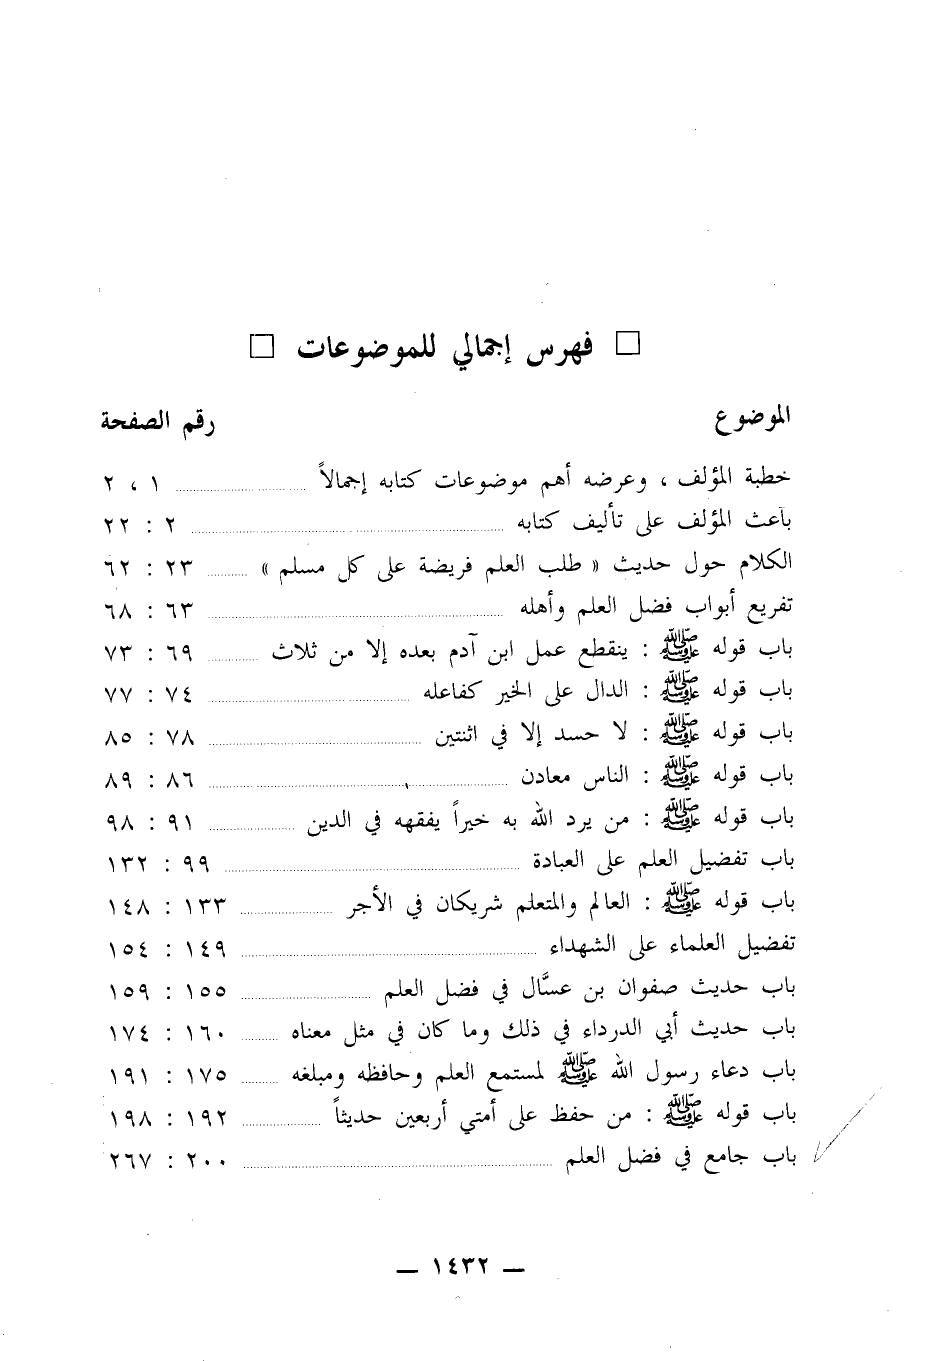 □ فهرس إجمالي للموضوعات □
الموضوع رقم الصفحة
خطبة المؤلف ، وعرضه أهم موضوعات كتابه إجمالاً ........ ١ ، ٢
باعث المؤلف على تأليف كتابه ........ ٢ : ٢٢
الكلام حول حديث « طلب العلم فريضة على كل مسلم » ........ ٢٣ : ٦٢
تفريع أبواب فضل العلم وأهله ........ ٦٣ : ٦٨
باب قوله ﷺ : ينقطع عمل ابن آدم بعده إلا من ثلاث ........ ٦٩ : ٧٣
باب قوله ﷺ : الدال على الخير كفاعله ........ ٧٤ : ٧٧
باب قوله ﷺ : لا حسد إلا في اثنتين ........ ٧٨ : ٨٥
باب قوله ﷺ : الناس معادن ........ ٨٦ : ٨٩
باب قوله ﷺ : من يرد الله به خيراً يفقهه في الدين ........ ٩١ : ٩٨
باب تفضيل العلم على العبادة ........ ٩٩ : ١٣٢
باب قوله ﷺ : العالم والمتعلم شريكان في الأجر ........ ١٣٣ : ١٤٨
تفضيل العلماء على الشهداء ........ ١٤٩ : ١٥٤
باب حديث صفوان بن عسَّال في فضل العلم ........ ١٥٥ : ١٥٩
باب حديث أبي الدرداء في ذلك وما كان في مثل معناه ........ ١٦٠ : ١٧٤
باب دعاء رسول الله ﷺ لمستمع العلم وحافظه ومبلغه ........ ١٧٥ : ١٩١
باب قوله ﷺ : من حفظ على أمتي أربعين حديثاً ........ ١٩٢ : ١٩٨
باب جامع في فضل العلم ........ ٢٠٠ : ٢٦٧
— ١٤٣٢ —